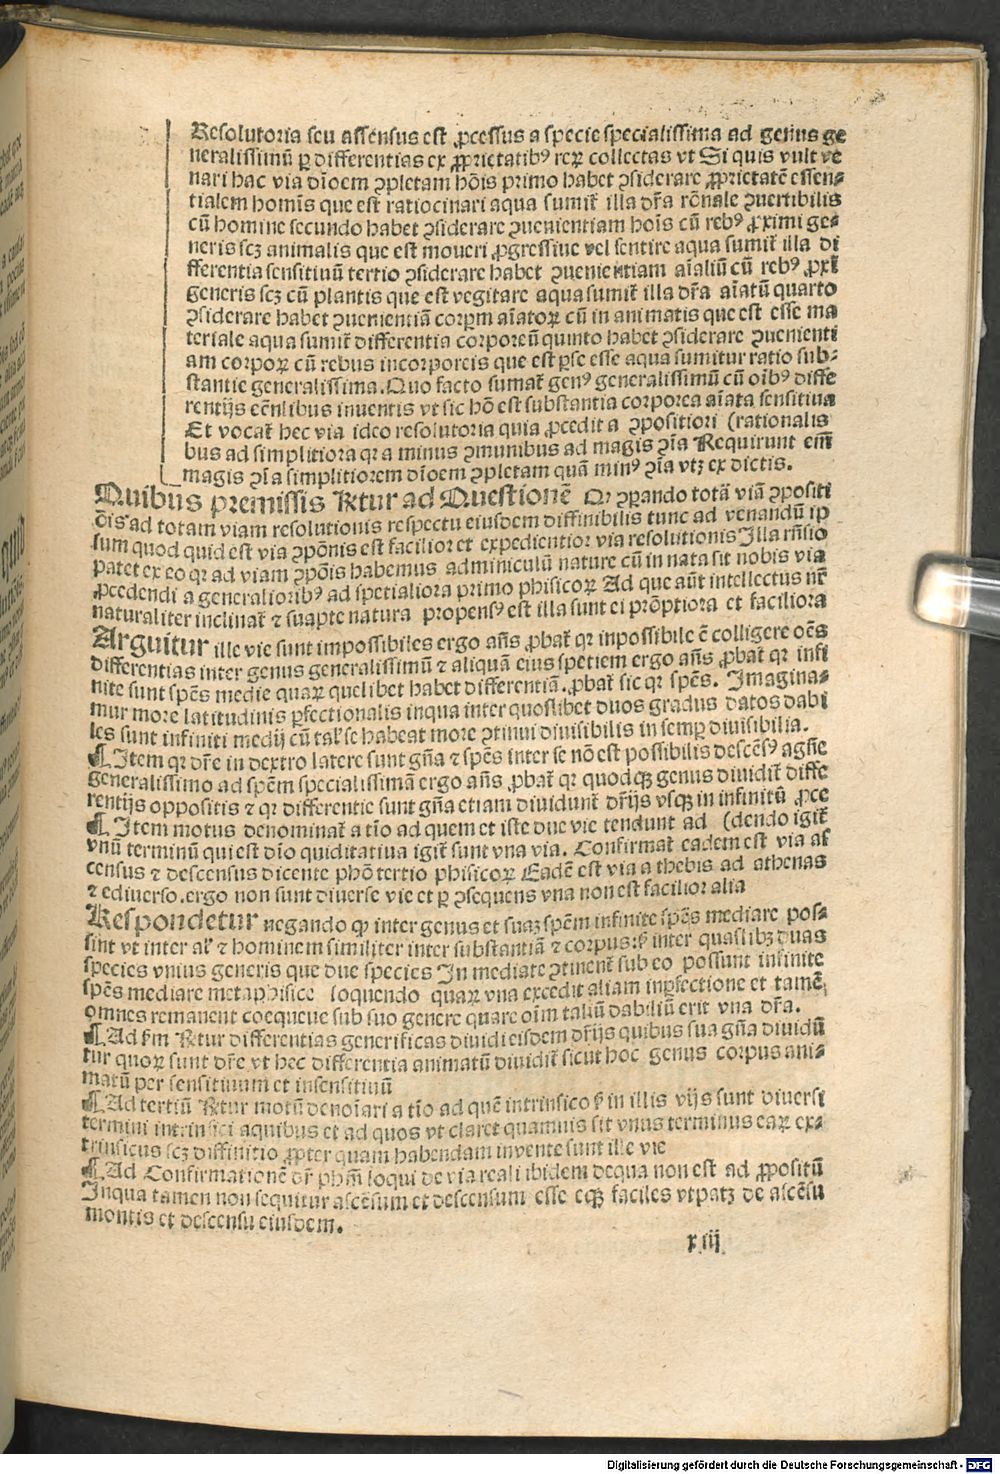 Resolutoria seu assensus est ꝓcessus a specie specialissima ad genus ge
neralissimū ꝑ differentias ex ꝓprietatibꝰ reꝝ collectas vt Si quis vult ve
nari hac via dīoem ꝯpletam hōis primo habet ꝯsiderare ꝓprietatē essen-
tialem hominis que est ratiocinari aqua sumit̄ illa dr̄a rōnale ꝯuertibilis
cū homine secundo habet ꝯsiderare ꝯuenientiam hois cū rebꝰ ꝓximi ge-
neris scꝫ animalis que est moueri ꝓgressiue vel sentire aqua sumit̄ illa di
fferentia sensitiuū tertio ꝯsiderare habet ꝯuenientiam aīaliū cū rebꝰ ꝓxī
generis scꝫ cū plantis que est vegitare aqua sumit̄ illa dr̄a aīatū quarto
ꝯsiderare habet ꝯuenientiā corpꝝm aīatoꝝ cū in animatis que est esse ma
teriale aqua sumit̄ differentia corporeū quinto habet ꝯsiderare ꝯuenienti
am corpoꝝ cū rebus incorporeis que est ꝑse esse aqua sumitur ratio sub-
stantie generalissima. Quo facto sumat̄ genꝰ generalissimū cū oībꝰ diffe
rentijs eēnlibus inuentis vt sic hō est substantia corporea aīata sensitiua
Et vocat̄ hec via ideo resolutoria quia ꝓcedit a ꝯpositiori (rationalis
bus ad simplitiora qr a minus ꝯmunibus ad magis ꝯīa Requirunt em̄
magis ꝯīa simplitiorem dīoem ꝯpletam quā minꝰ ꝯīa vtꝫ ex dictis.
Quibus premissis Rtur ad Questionē Qr ꝯꝑando totā viā ꝯpositi
ōis ad totam viam resolutionis respectu eiusdem diffinibilis tunc ad venandū ip
sum quod quid est via ꝯpōnis est facilior et expedientior via resolutionis Illa rn̄sio
patet ex eo qr ad viam ꝯpōis habemus adminiculū nature cū in nata sit nobis via
ꝓcedendi a generalioribꝰ ad spetialiora primo phisicoꝝ Ad que aūt intellectus nr̄
naturaliter inclinat̄ ⁊ suapte natura propensꝰ est illa sunt ei prōptiora et faciliora
Arguitur ille vie sunt impossibiles ergo an̄s ꝓbat̄ qr inpossibile ē colligere oēs
differentias inter genus generalissimū ⁊ aliquā eius spetiem ergo an̄s ꝓbat̄ qr infi
nite sunt spēs medie quaꝝ quelibet habet differentiā. ꝓbat̄ sic qr spēs. Imagina-
mur more latitudinis ꝑfectionalis inqua inter quoslibet duos gradus datos dabi
les sunt infiniti medij cū tal' se habeat more ꝯtinui diuisibilis in semꝑ diuisibilia.
¶ Item qr dr̄e in dextro latere sunt gn̄a ⁊ spēs inter se nō est possibilis descēsꝰ agn̄e
generalissimo ad spēm specialissimā ergo an̄s ꝓbat̄ qr quodcqꝫ genus diuidit̄ diffe
rentijs oppositis ⁊ qr differentie sunt gn̄a etiam diuidunt̄ dr̄ijs vsqꝫ in infinitū ꝓce
¶ Item motus denominat̄ a tīo ad quem et iste due vie tendunt ad (dendo igit̄
vnū terminū qui est dīo quiditatiua igit̄ sunt vna via. Confirmat̄ eadem est via as
census ⁊ descensus dicente phō tertio phisicoꝝ Eadē est via a thebis ad athenas
⁊ ediuerso. ergo non sunt diuerse vie et ꝑ ꝯsequens vna non est facilior alia
Respondetur negando ꝙ inter genus et suaꝫ spēm infinite spēs mediare pos-
sint vt inter al' ⁊ hominem similiter inter substantiā ⁊ corpus: inter quaslibꝫ duas
species vnius generis que due species In mediate ꝯtinent̄ sub eo possunt infinite
spēs mediare metaphisice loquendo quaꝝ vna excedit aliam inꝑfectione et tamē
omnes remanent coequeue sub suo genere quare oīm taliū dabiliū erit vna dr̄a.
¶ Ad sm Rtur differentias generificas diuidi eisdem dr̄ijs quibus sua gn̄a diuidū
tur quoꝝ sunt dr̄e vt hec differentia animatū diuidit̄ sicut hoc genus corpus ani-
matū per sensitiuum et insensitiuū
¶ Ad tertiū Rtur motū denoīari a tīo ad quē intrinsico in illis vijs sunt diuersi
termini intrinsici aquibus et ad quos vt claret quamuis sit vnus terminus eaꝝ ex-
trinsicus scꝫ diffinitio ꝓpter quam habendam inuente sunt ille vie
¶ Ad Confirmationē dr̄ phm̄ loqui de via reali ibidem dequa non est ad ꝓpositū
Inqua tamen non sequitur ascēsum et descensum esse eqꝫ faciles vt patꝫ de ascēsu
montis et descensu eiusdem.